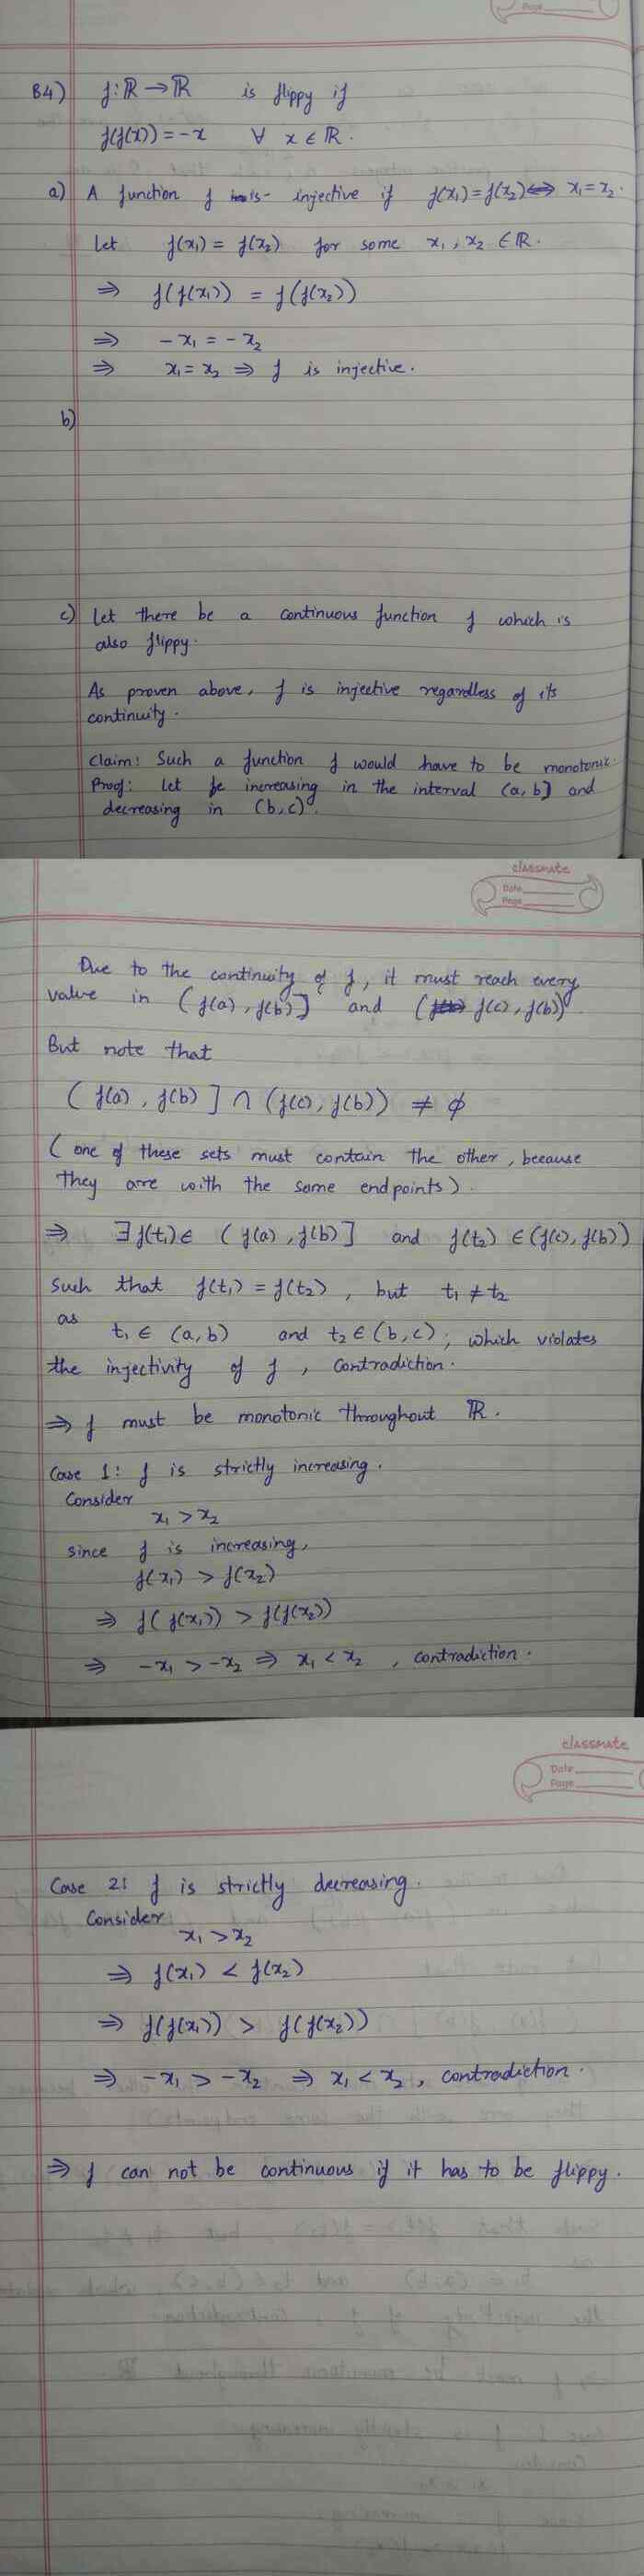 Page
B4) f: ℝ → ℝ is flippy if
f(f(x)) = -x ∀ x ∈ ℝ.
a) A function f is injective if f(x₁) = f(x₂) ⟺ x₁ = x₂.
Let f(x₁) = f(x₂) for some x₁, x₂ ∈ ℝ.
⇒ f(f(x₁)) = f(f(x₂))
⇒ -x₁ = -x₂
⇒ x₁ = x₂ ⇒ f is injective.
b)
c) Let there be a continuous function f which is
also flippy.
As proven above, f is injective regardless of its
continuity.
Claim: Such a function f would have to be monotonic.
Proof: Let f be increasing in the interval (a, b] and
decreasing in (b, c).
classmate
Date
Page
Due to the continuity of f, it must reach every
value in (f(a), f(b)] and (f(c), f(b))
But note that
(f(a), f(b)] ∩ (f(c), f(b)) ≠ ϕ
(one of these sets must contain the other, because
they are with the same endpoints).
⇒ ∃ f(t₁) ∈ (f(a), f(b)] and f(t₂) ∈ (f(c), f(b))
such that f(t₁) = f(t₂), but t₁ ≠ t₂
as t₁ ∈ (a, b) and t₂ ∈ (b, c), which violates
the injectivity of f, contradiction.
⇒ f must be monotonic throughout ℝ.
Case 1: f is strictly increasing.
Consider
x₁ > x₂
since f is increasing,
f(x₁) > f(x₂)
⇒ f(f(x₁)) > f(f(x₂))
⇒ -x₁ > -x₂ ⇒ x₁ < x₂, contradiction.
classmate
Date
Page
Case 2: f is strictly decreasing.
Consider
x₁ > x₂
⇒ f(x₁) < f(x₂)
⇒ f(f(x₁)) > f(f(x₂))
⇒ -x₁ > -x₂ ⇒ x₁ < x₂, contradiction.
⇒ f can not be continuous if it has to be flippy.